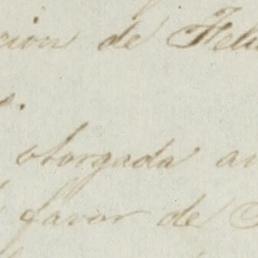 cion de Feli
otorgada an
favor de